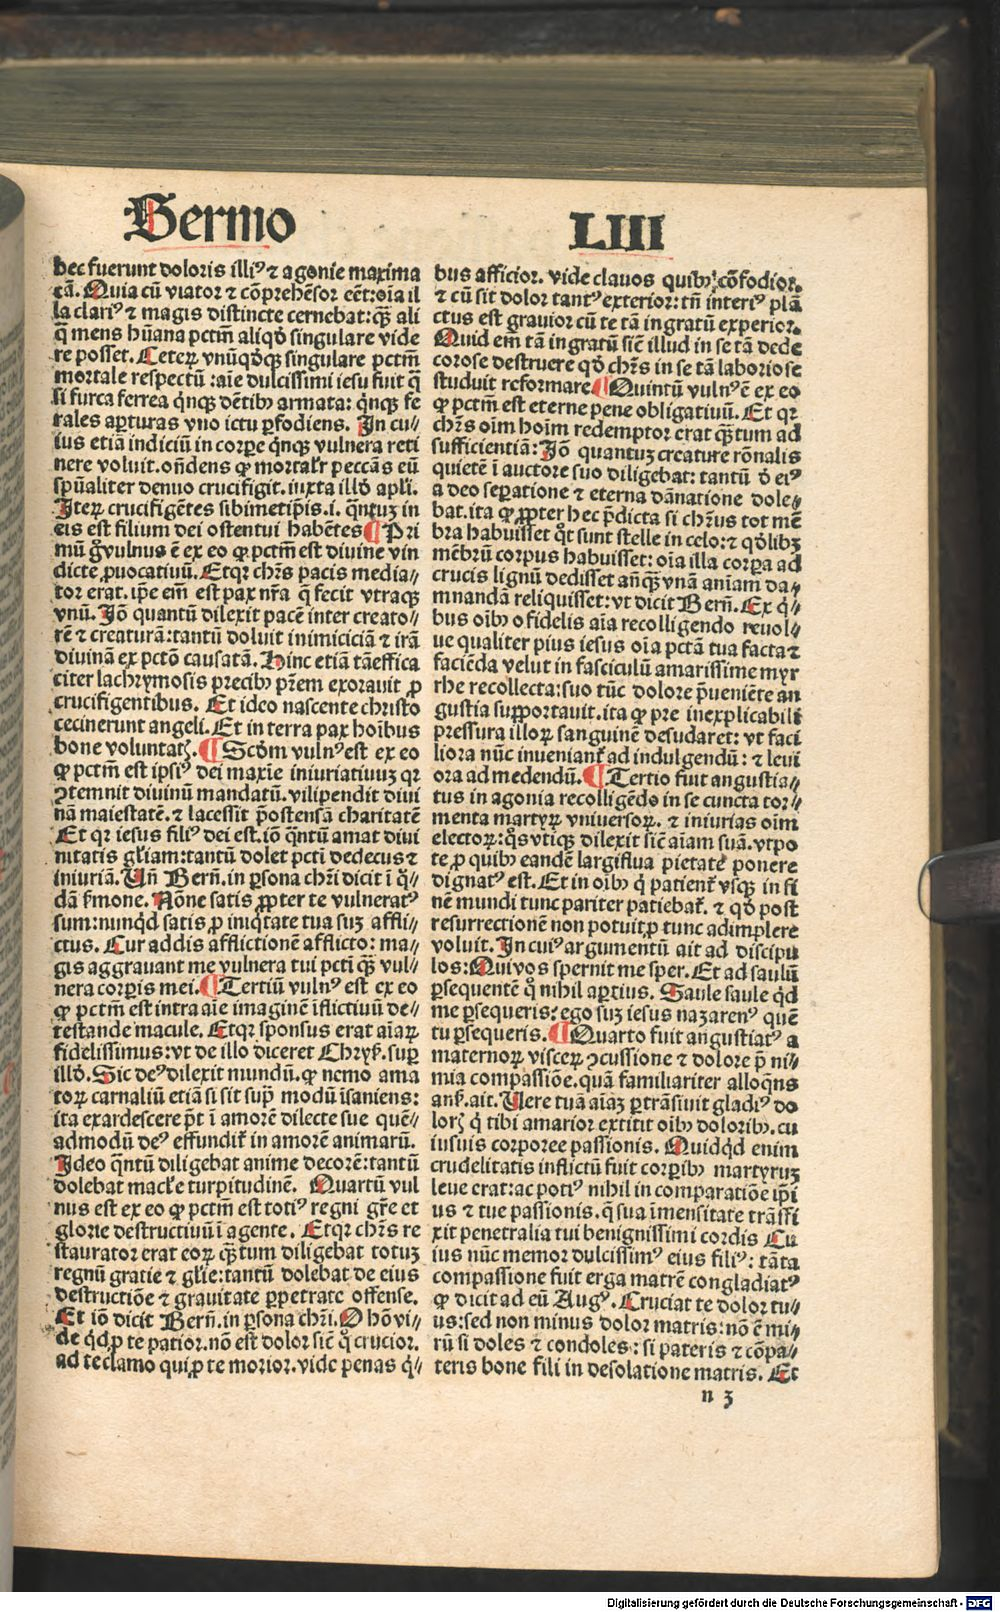 Sermo LIII
hec fuerunt doloris illiꝰ ⁊ agonie maxima
cā. Quia cū viator ⁊ cōprehēsor eēt: oīa il
la clariꝰ ⁊ magis distincte cernebat: qꝫ ali
q̄ mens hūana pctm̄ aliqd̄ singulare vide
re posset. Ceteꝝ vnūqd̄qꝫ singulare pctm̄
mortale respectū: aīe dulcissimi iesu fuit q̄
si furca ferrea q̇nqꝫ dētibꝰ armata: q̇nqꝫ fe
rales aꝑturas vno ictu ꝑfodiens. In cu⸗
ius etiā indiciū in corꝑe q̇nqꝫ vulnera reti
nere voluit. on̄dens ꝙ mortalr̄ peccās eū
spūaliter denuo crucifigit. iuxta illd̄ apl̄i.
Iteꝝ crucifigētes sibimetip̄is .i. q̄ntuꝫ in
eis est filium dei ostentui habētes ¶ Pri
mū gͦ vulnus ē ex eo ꝙ pctm̄ est diuine vin
dicte ꝓuocatiuū. Et qꝛ chr̄s pacis media⸗
tor erat. ip̄e em̄ est pax nr̄a q̇ fecit vtraqꝫ
vnū. Iō quantū dilexit pacē inter creato⸗
rē ⁊ creaturā: tantū doluit inimiciciā ⁊ irā
diuinā ex pctō causatā. Hinc etiā tā effica
citer lachrymosis precibꝰ pr̄em exorauit ꝓ
crucifigentibus. Et ideo nascente christo
cecinerunt angeli. Et in terra pax hoībus
bone voluntatꝭ. ¶ Scd̄m vulnꝰ est ex eo
ꝙ pctm̄ est ipsiꝰ dei maxīe iniuriatiuuꝫ qꝛ
ꝯtemnit diuinū mandatū. vilipendit diui
nā maiestatē. ⁊ lacessit p̄ostensā charitatē
Et qꝛ iesus filiꝰ dei est. iō q̄ntū amat diui
nitatis gl̄iam: tantū dolet pcti dedecus ⁊
iniuriā. Un̄ Bern̄. in ꝑsona chr̄i dicit ī q̇⸗
dā ẜmone. Nōne satis ꝓpter te vulneratꝰ
sum: nunqd̄ satis ꝓ iniq̇tate tua suꝫ affli⸗
ctus. Cur addis afflictionē afflicto: ma⸗
gis aggrauant me vulnera tui pcti qꝫ vul⸗
nera corꝑis mei. ¶ Tertiū vulnꝰ est ex eo
ꝙ pctm̄ est intra aīe imaginē īflictiuū de⸗
testande macule. Et qꝛ sponsus erat aīaꝝ
fidelissimus: vt de illo diceret Chryẜ. suꝑ
illd̄. Sic deꝰ dilexit mundū. ꝙ nemo ama
toꝝ carnaliū etiā si sit sup̄ modū īsaniens:
ita exardescere p̄t ī amorē dilecte sue quē⸗
admodū deꝰ effundit̄ in amorē animarū.
Ideo q̄ntū diligebat anime decorē: tantū
dolebat macl̄e turpitudinē. Quartū vul
nus est ex eo ꝙ pctm̄ est totiꝰ regni gr̄e et
glorie destructiuū ī agente. Et qꝛ chr̄s re
staurator erat eoꝝ qꝫ tum diligebat totuꝫ
regnū gratie ⁊ gl̄ie: tantū dolebat de eius
destructiōe ⁊ grauitate ꝑpetrate offense.
Et iō dicit Bern̄. in ꝑsona chr̄i. O hō vi⸗
de qd̄ ꝓ te patior. nō est dolor sic̄ q̇ crucior.
ad te clamo qui ꝓ te morior. vide penas q̇⸗
bus afficior. vide clauos quibꝰ cōfodior.
⁊ cū sit dolor tantꝰ exterior: tn̄ interiꝰ plā
ctus est grauior cū te tā ingratū experior.
Quid em̄ tā ingratū sic̄ illud in se tā dede
corose destruere qd̄ chr̄s in se tā laboriose
studuit reformare ¶ Quintū vulnꝰ ē ex eo
ꝙ pctm̄ est eterne pene obligatiuū. Et qꝛ
chr̄s oīm hoīm redemptor erat qꝫtum ad
sufficientiā: Iō quantuꝫ creature rōnalis
quietē ī auctore suo diligebat: tantū d̄ eiꝰ
a deo seꝑatione ⁊ eterna dānatione dole⸗
bat. ita ꝙ ꝓpter hec p̄dicta si chr̄us tot mē
bra habuisset qt̄ sunt stelle in celo: ⁊ qd̄libꝫ
mēbrū corpus habuisset: oīa illa corꝑa ad
crucis lignū dedisset an̄qꝫ vnā anīam da⸗
mnandā reliquisset: vt dicit Bern̄. Ex q̇⸗
bus oībꝰ o fidelis aīa recolligendo reuol⸗
ue qualiter pius iesus oīa pctā tua facta ⁊
faciēda velut in fasciculū amarissime myr
rhe recollecta: suo tūc dolore p̄ueniēte an
gustia supportauit. ita ꝙ pre inexplicabili
pressura illoꝝ sanguinē desudaret: vt faci
liora nūc inueniant̄ ad indulgendū: ⁊ leui
ora ad medendū. ¶ Tertio fuit angustia⸗
tus in agonia recolligēdo in se cuncta tor⸗
menta martyꝝ vniuersoꝝ. ⁊ iniurias oīm
electoꝝ: q̇s vtiqꝫ dilexit sic̄ aīam suā. vtpo
te ꝓ quibꝰ eandē largiflua pietate ponere
dignatꝰ est. Et in oībꝰ q̇ patient̄ vsqꝫ in fi
nē mundi tunc pariter patiebat̄. ⁊ qd̄ post
resurrectionē non potuit ꝓ tunc adimplere
voluit. In cuiꝰ argumentū ait ad discipu
los: Qui vos spernit me sper. Et ad sauliū
ꝑsequentē q̇ nihil aꝑtius. Saule saule qd̄
me ꝑsequeris: ego suꝫ iesus nazarenꝰ quē
tu ꝑsequeris. ¶ Quarto fuit angustiatꝰ a
maternoꝝ visceꝝ ꝯcussione ⁊ dolore p̄ ni⸗
mia compassiōe. quā familiariter alloq̄ns
anẜ. ait. Uere tuā aīaꝫ ꝑtrāsiuit gladiꝰ do
lorꝭ q̇ tibi amarior extitit oībꝰ doloribꝰ. cu
iusuis corporee passionis. Quidqd̄ enim
crudelitatis inflictū fuit corꝑibꝰ martyruꝫ
leue erat: ac potiꝰ nihil in comparatiōe ip̄i
us ⁊ tue passionis. q̇ sua īmensitate trāsfi
xit penetralia tui benignissimi cordis Cu
ius nūc memor dulcissimꝰ eius filiꝰ: tāta
compassione fuit erga matrē congladiatꝰ
ꝙ dicit ad eū Augꝰ. Cruciat te dolor tu⸗
us: sed non minus dolor matris: nō ē mi⸗
rū si doles ⁊ condoles: si pateris ⁊ cōpa⸗
teris bone fili in desolatione matris. Et
n 3
Digitalisierung gefördert durch die Deutsche Forschungsgemeinschaft - DFG